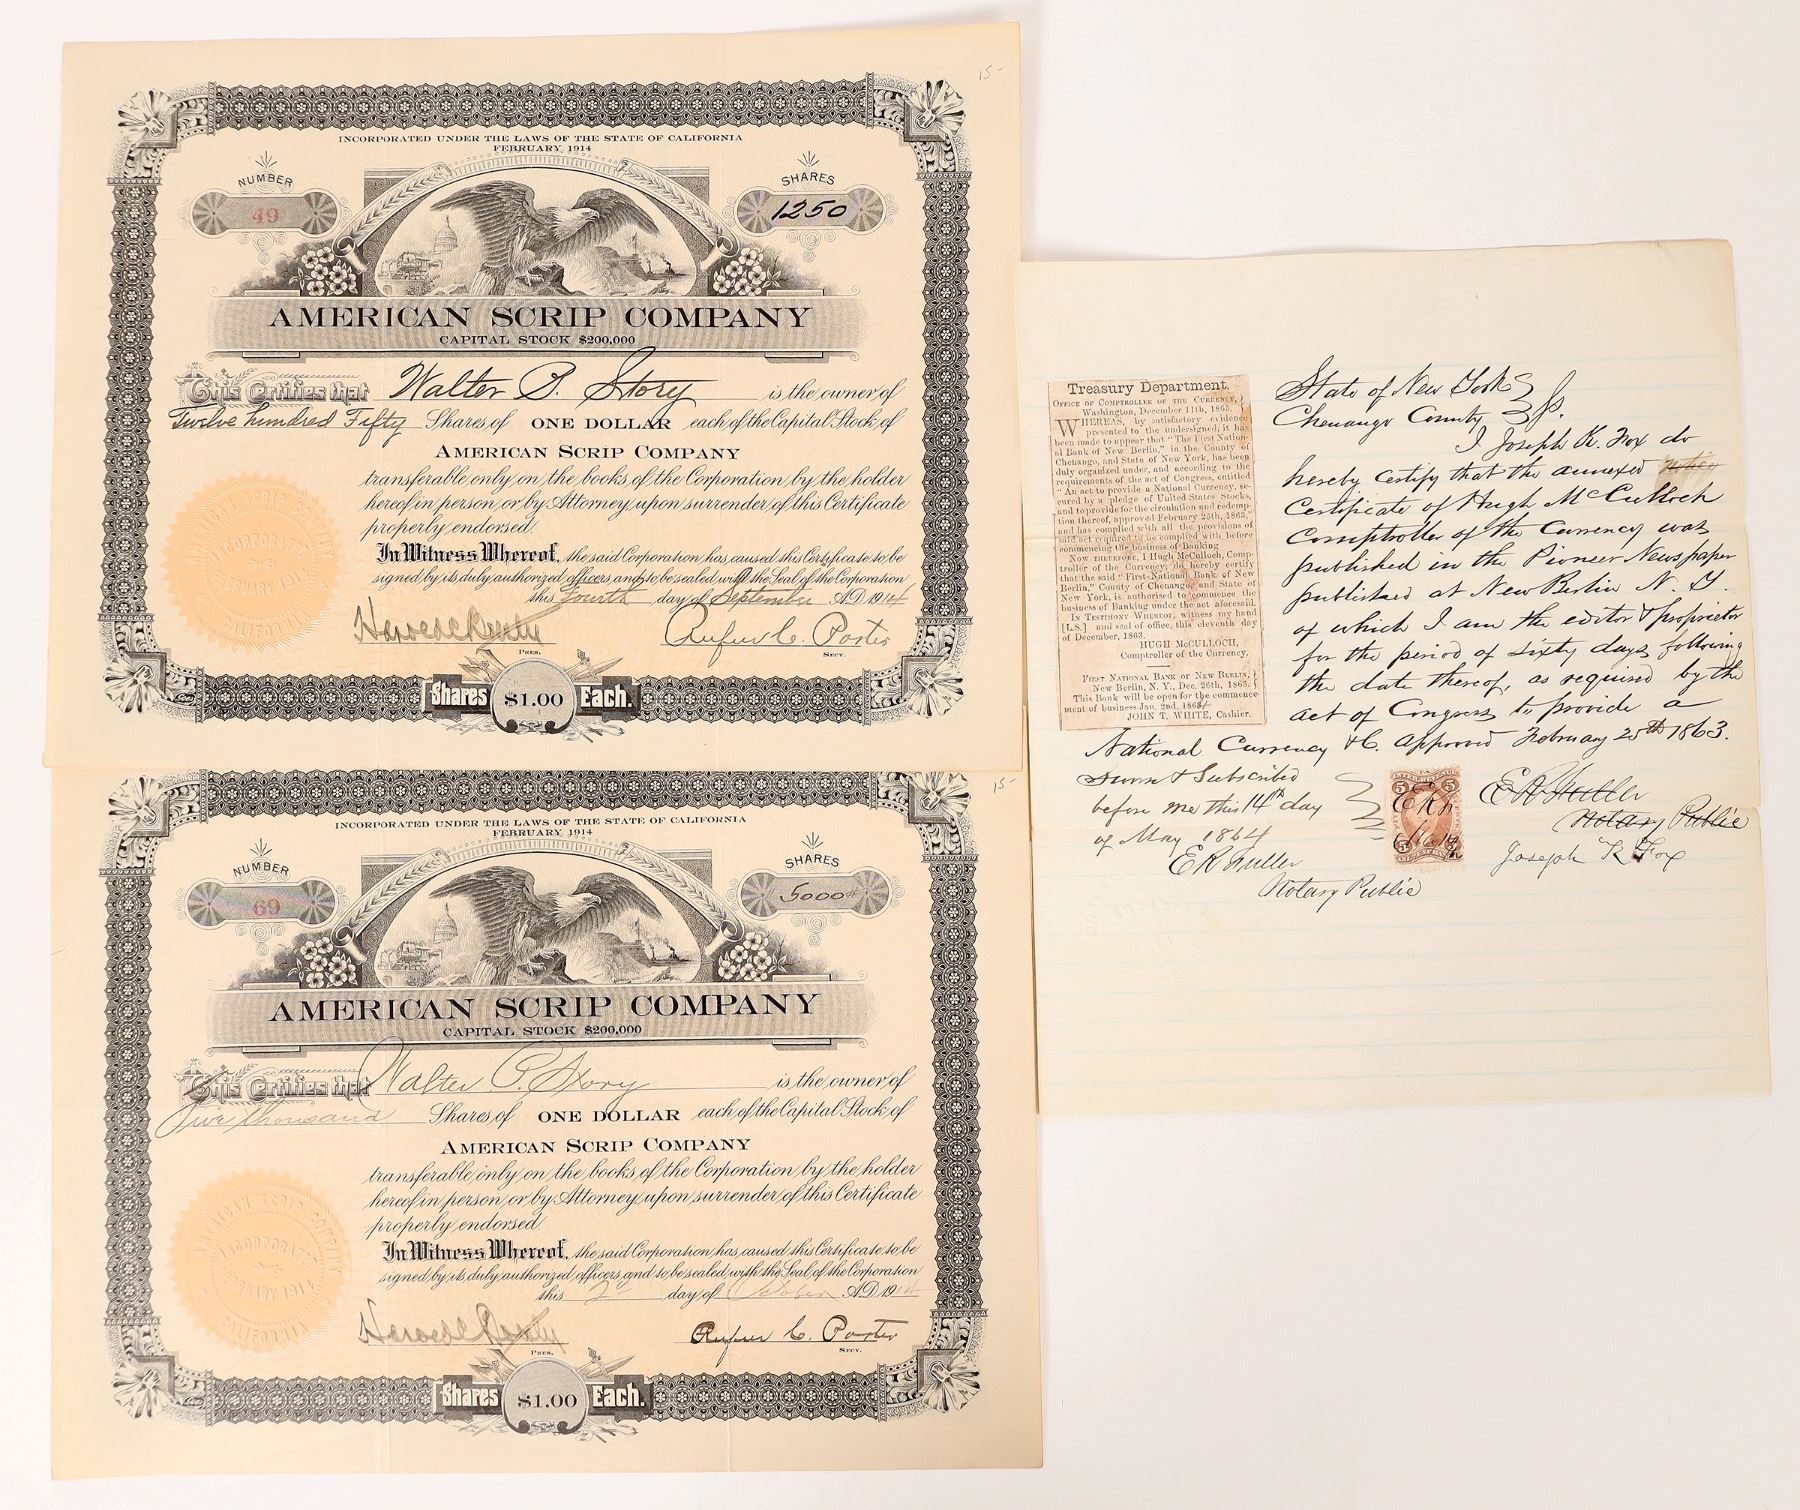 15-
INCORPORATED UNDER THE LAWS OF THE STATE OF CALIFORNIA
FEBRUARY, 1914
NUMBER
49
SHARES
1250
AMERICAN SCRIP COMPANY
CAPITAL STOCK $200,000
This Certifies that Walter P. Story is the owner of
Twelve hundred Fifty Shares of ONE DOLLAR each of the Capital Stock of
AMERICAN SCRIP COMPANY
transferable only on the books of the Corporation by the holder
hereof in person or by Attorney upon surrender of this Certificate
properly endorsed.
In Witness Whereof, the said Corporation has caused this Certificate to be
signed by its duly authorized officers and to be sealed with the Seal of the Corporation
this Fourth day of September A.D. 1914
Rufus C. Porter
PRES.
SECY.
AMERICAN SCRIP COMPANY
INCORPORATED
FEBRUARY 1914
CALIFORNIA
Shares $1.00 Each.
15-
INCORPORATED UNDER THE LAWS OF THE STATE OF CALIFORNIA
FEBRUARY, 1914
NUMBER
69
SHARES
5000
AMERICAN SCRIP COMPANY
CAPITAL STOCK $200,000
This Certifies that Walter P. Story is the owner of
Five thousand Shares of ONE DOLLAR each of the Capital Stock of
AMERICAN SCRIP COMPANY
transferable only on the books of the Corporation by the holder
hereof in person or by Attorney upon surrender of this Certificate
properly endorsed.
In Witness Whereof, the said Corporation has caused this Certificate to be
signed by its duly authorized officers and to be sealed with the Seal of the Corporation
this 2nd day of October A.D. 1914
Rufus C. Porter
PRES.
SECY.
AMERICAN SCRIP COMPANY
INCORPORATED
FEBRUARY 1914
CALIFORNIA
Shares $1.00 Each.
Treasury Department.
OFFICE OF COMPTROLLER OF THE CURRENCY,
Washington, December 11th, 1863.
WHEREAS, by satisfactory evidence
presented to the undersigned, it has
been made to appear that "The First Nation-
al Bank of New Berlin," in the County of
Chenango, and State of New York, has been
duly organized under, and according to the
requirements of the act of Congress, entitled
"An act to provide a National Currency, se-
cured by a pledge of United States Stocks,
and to provide for the circulation and redemp-
tion thereof, approved February 25th, 1863,"
and has complied with all the provisions of
said act required to be complied with before
commencing the business of Banking
Now therefore, I Hugh McCulloch, Comp-
troller of the Currency, do hereby certify
that the said "First National Bank of New
Berlin," County of Chenango, and State of
New York, is authorised to commence the
business of Banking under the act aforesaid.
IN TESTIMONY WHEREOF, witness my hand
[LS.] and seal of office, this eleventh day
of December, 1863.
HUGH McCULLOCH,
Comptroller of the Currency.
FIRST NATIONAL BANK OF NEW BERLIN,
New Berlin, N. Y., Dec. 26th, 1863.
This Bank will be open for the commence-
ment of business Jan. 2nd, 1864
JOHN T. WHITE, Cashier.
State of New York
Chenango County } ss.
I Joseph K. Fox do
hereby certify that the annexed notice
Certificate of Hugh McCulloch
Comptroller of the Currency was
published in the Pioneer Newspaper
published at New Berlin N. Y.
of which I am the editor & proprietor
for the period of sixty days following
the date thereof, as required by the
act of Congress to provide a
National Currency &C. approved February 25th 1863.
Sworn & Subscribed
before me this 14th day
of May 1864
E R Fuller
Notary Public
5 5
E R F
5 5
E R Fuller
Notary Public
Joseph K. Fox